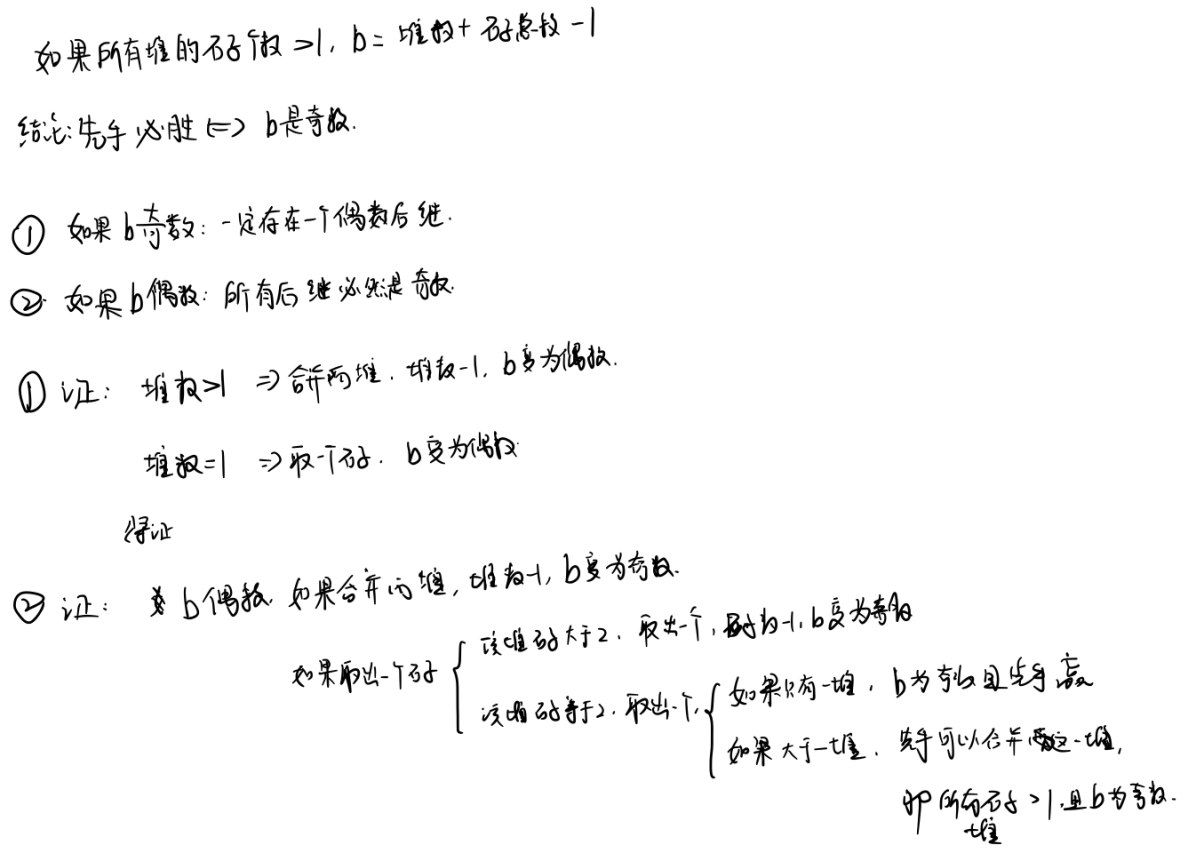 如果所有堆的石子个数>1, b=堆数+石子总数-1
结论:先手必胜 <=> b是奇数.
① 如果b奇数: 一定存在一个偶数后继.
② 如果b偶数: 所有后继必然是奇数.
① 证: 堆数>1 => 合并两堆. 堆数-1, b变为偶数.
堆数=1 => 取一个石子. b变为偶数
得证
② 证: b偶数, 如果合并两堆, 堆数-1, b变为奇数.
如果取出一个石子
该堆石子大于2, 取出一个, 石子数-1, b变为奇数
该堆石子等于2, 取出一个,
如果只有一堆, b为奇数且先手赢
如果大于一堆, 先手可以合并这一堆,
即所有堆石子>1, 且b为奇数.